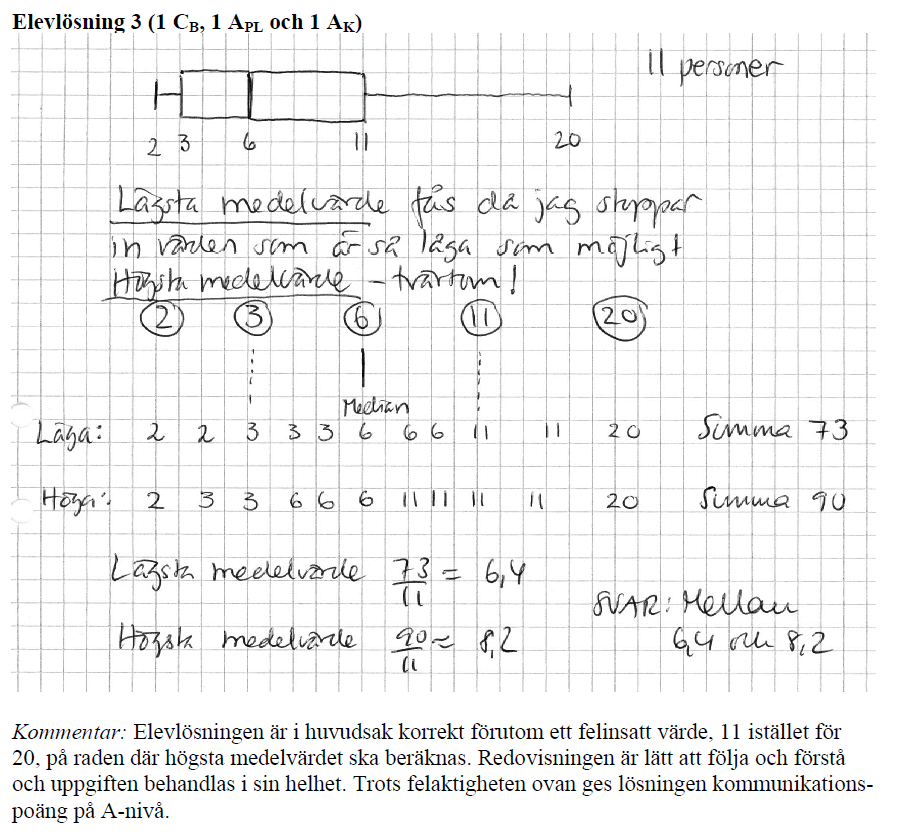 Elevlösning 3 (1 C_B, 1 A_PL och 1 A_K)
11 personer
2 3 6 11 20
Lägsta medelvärde fås då jag stoppar
in värden som är så låga som möjligt
Högsta medelvärde – tvärtom!
2 3 6 11 20
Median
Låga: 2 2 3 3 3 6 6 6 11 11 20 Summa 73
Höga: 2 3 3 6 6 6 11 11 11 11 20 Summa 90
Lägsta medelvärde 73/11 = 6,4
Högsta medelvärde 90/11 ≈ 8,2
SVAR: Mellan
6,4 och 8,2
Kommentar: Elevlösningen är i huvudsak korrekt förutom ett felinsatt värde, 11 istället för
20, på raden där högsta medelvärdet ska beräknas. Redovisningen är lätt att följa och förstå
och uppgiften behandlas i sin helhet. Trots felaktigheten ovan ges lösningen kommunikations-
poäng på A-nivå.